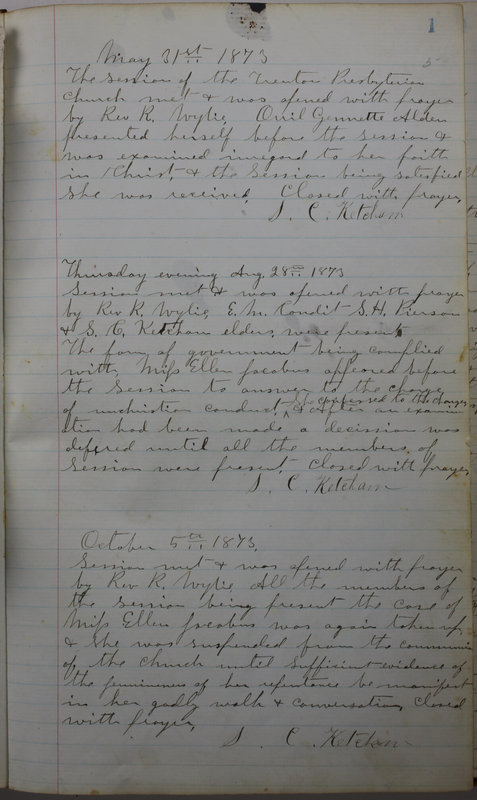 1
5
May 31st 1873
The Session of the Trenton Presbyterian
Church met & was opened with prayer
by Rev R. Wylie Orril Gennette Alden
presented herself before the Session &
was examined inregard to her faith
in Christ & the Session being satisfied
She was received. Closed with prayer,
S. C. Ketcham
Thursday evening Aug. 28th 1873
Session met & was opened with prayer
by Rev R. Wylie E. M. Condit S. H. Pierson
& S. C. Ketcham elders, were present
The form of government being complied
with, Miss Ellen Jacobus appeared before
the Session to answer to the charge
of unchristian conduct, She confessed to the charges
& After an examin
ation had been made a decission was
defered until all the members of
Session were present. Closed with prayer,
S. C. Ketcham
October 5th 1873,
Session met & was opened with prayer
by Rev R. Wylie All the members of
the Session being present the case of
Miss Ellen Jacobus was again taken up,
& She was suspended from the communion
of the Church until Sufficient evidence of
the genuineness of her repentance be manifest
in her godly walk & conversation, Closed
with prayer,
S. C. Ketcham